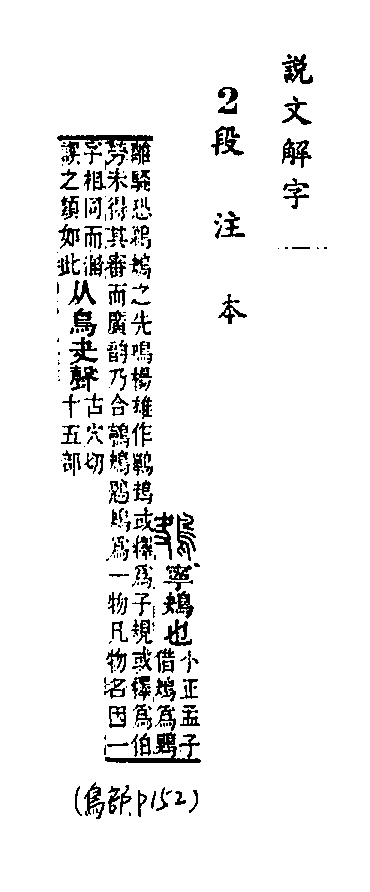 說文解字
2段注本
鴂
寧鴂也
小正孟子
借鴂爲鵙
離騷恐鵜鴂之先鳴楊雄作鷤鴂或釋爲子規或釋爲伯
勞未得其審而廣韵乃合鸋鴂鶗鴂爲一物凡物名因一
字相同而淆
誤之類如此
从鳥夬聲
古穴切
十五部
(鳥部p152)